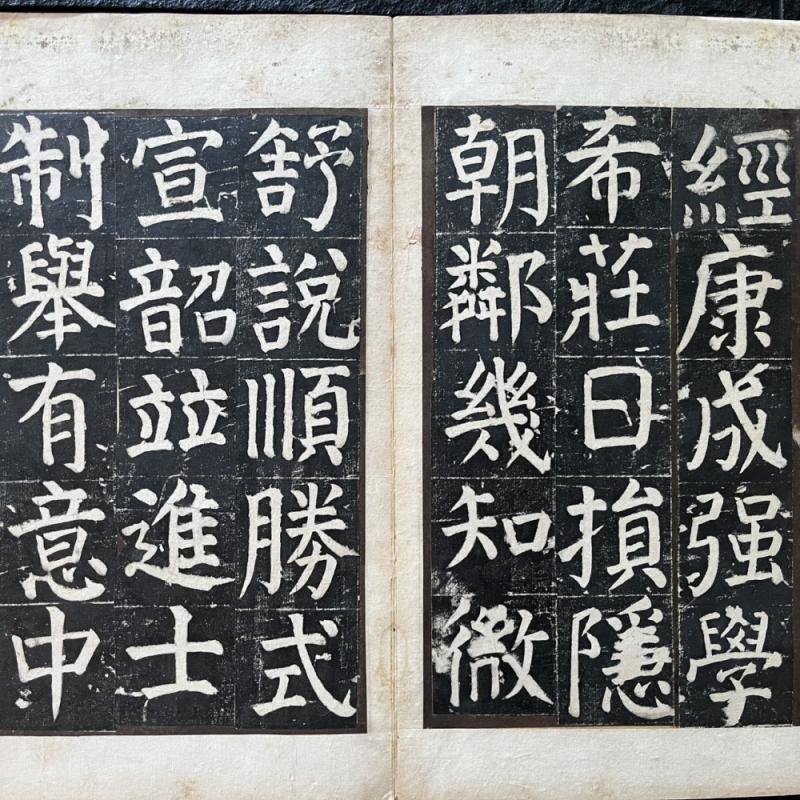 經康成强學
希莊日損隱
朝鄰幾知微
舒說順勝式
宣韶並進士
制舉有意中